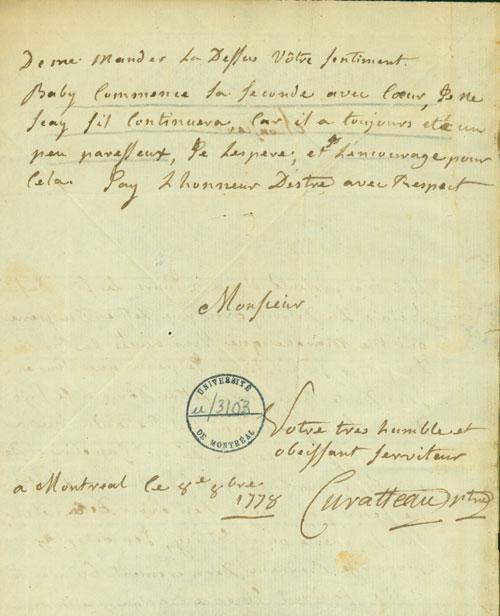 De me mander La Dessus Vôtre sentiment.
Baby Commence sa seconde avec Cœur, Je ne
scay s'il Continuera, Car il a toujours eté un
peu paresseux, Je Lespere, et Je Lencourage pour
Cela. J'ay L'honneur Destre avec Respect
Monsieur
UNIVERSITÉ
u/3103
DE MONTRÉAL
Votre tres humble et
obeissant serviteur
a Montreal Ce 8e 8bre
1778
Curatteau ptre